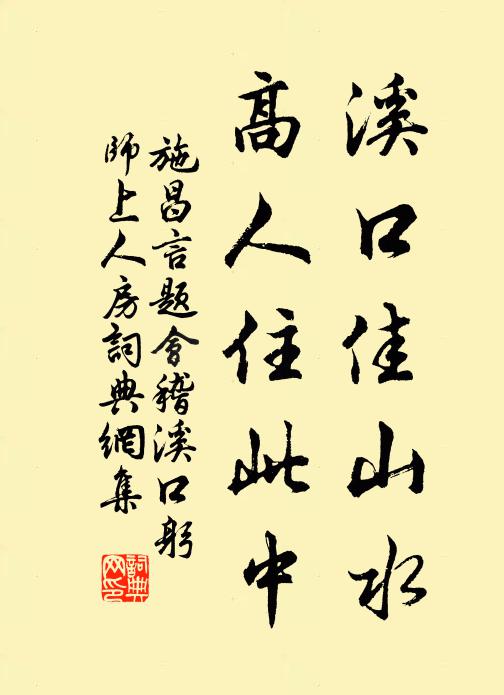 溪口佳山水
高人住此中
施昌言題會稽溪口躬
師上人房詞典網集
詞典
网印